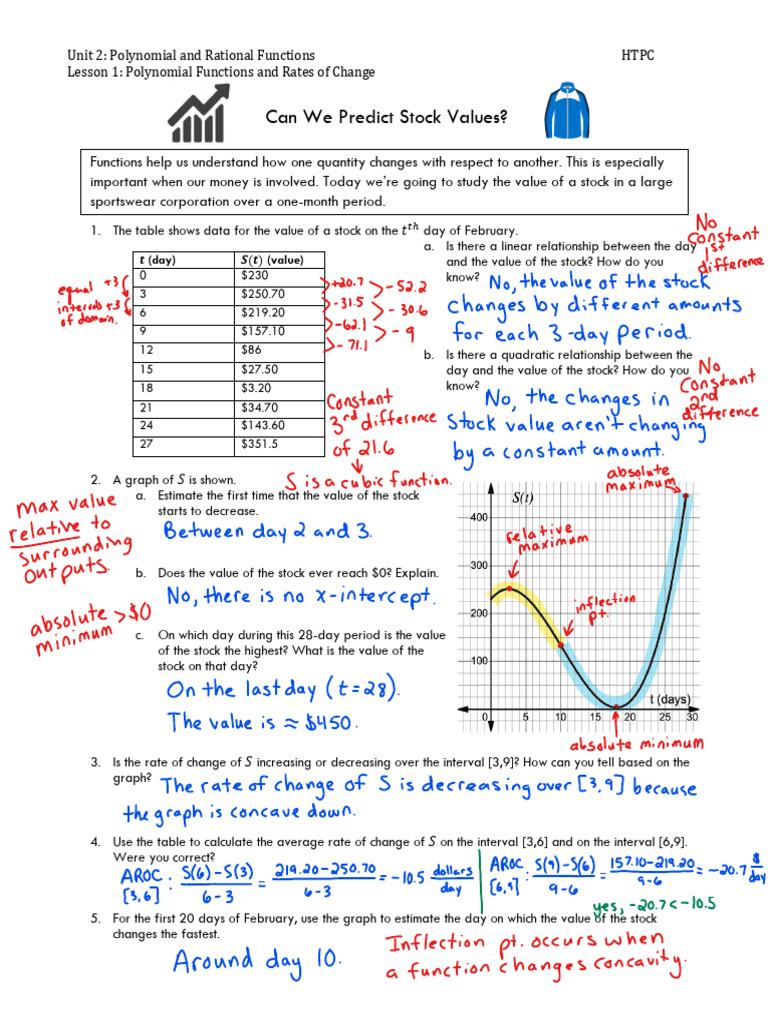 Unit 2: Polynomial and Rational Functions HTPC
Lesson 1: Polynomial Functions and Rates of Change
Can We Predict Stock Values?
Functions help us understand how one quantity changes with respect to another. This is especially
important when our money is involved. Today we're going to study the value of a stock in a large
sportswear corporation over a one-month period.
1. The table shows data for the value of a stock on the tth day of February.
t (day) S(t) (value)
0 $230
3 $250.70
6 $219.20
9 $157.10
12 $86
15 $27.50
18 $3.20
21 $34.70
24 $143.60
27 $351.5
equal +3
intervals +3
of domain.
+20.7
-31.5
-62.1
-71.1
-52.2
-30.6
-9
Constant
3rd difference
of 21.6
S is a cubic function.
a. Is there a linear relationship between the day
and the value of the stock? How do you
know? No, the value of the stock
changes by different amounts
for each 3-day period.
No
constant
1st
difference
b. Is there a quadratic relationship between the
day and the value of the stock? How do you
know?
No, the changes in
stock value aren't changing
by a constant amount.
No
Constant
2nd
difference
2. A graph of S is shown.
a. Estimate the first time that the value of the stock
starts to decrease.
Between day 2 and 3.
max value
relative to
surrounding
outputs.
b. Does the value of the stock ever reach $0? Explain.
No, there is no x-intercept.
absolute > $0
minimum
c. On which day during this 28-day period is the value
of the stock the highest? What is the value of the
stock on that day?
On the last day (t=28).
The value is ≈ $450.
absolute
maximum
S(t)
400
300
200
100
relative
maximum
inflection
pt.
t (days)
0 5 10 15 20 25 30
absolute minimum
3. Is the rate of change of S increasing or decreasing over the interval [3,9]? How can you tell based on the
graph? The rate of change of S is decreasing over [3,9] because
the graph is concave down.
4. Use the table to calculate the average rate of change of S on the interval [3,6] and on the interval [6,9].
Were you correct?
AROC [3,6] : S(6)-S(3) / 6-3 = 219.20-250.70 / 6-3 = -10.5 dollars/day
AROC [6,9] : S(9)-S(6) / 9-6 = 157.10-219.20 / 9-6 = -20.7 $/day
yes, -20.7 < -10.5
5. For the first 20 days of February, use the graph to estimate the day on which the value of the stock
changes the fastest.
Around day 10.
Inflection pt. occurs when
a function changes concavity.